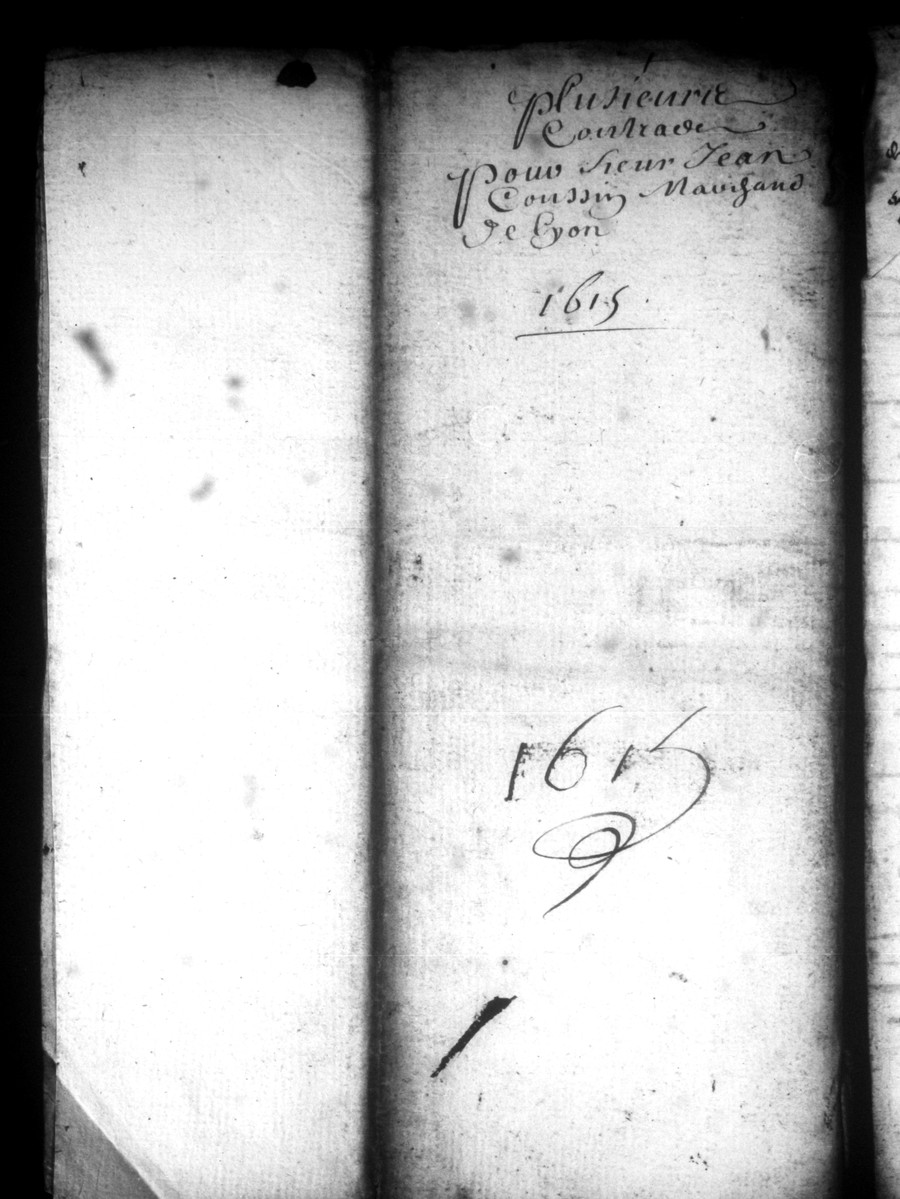 Plusieurs
Contractz
Pour sieur Jean
Coussin Marchand
De Lyon
1615
1615